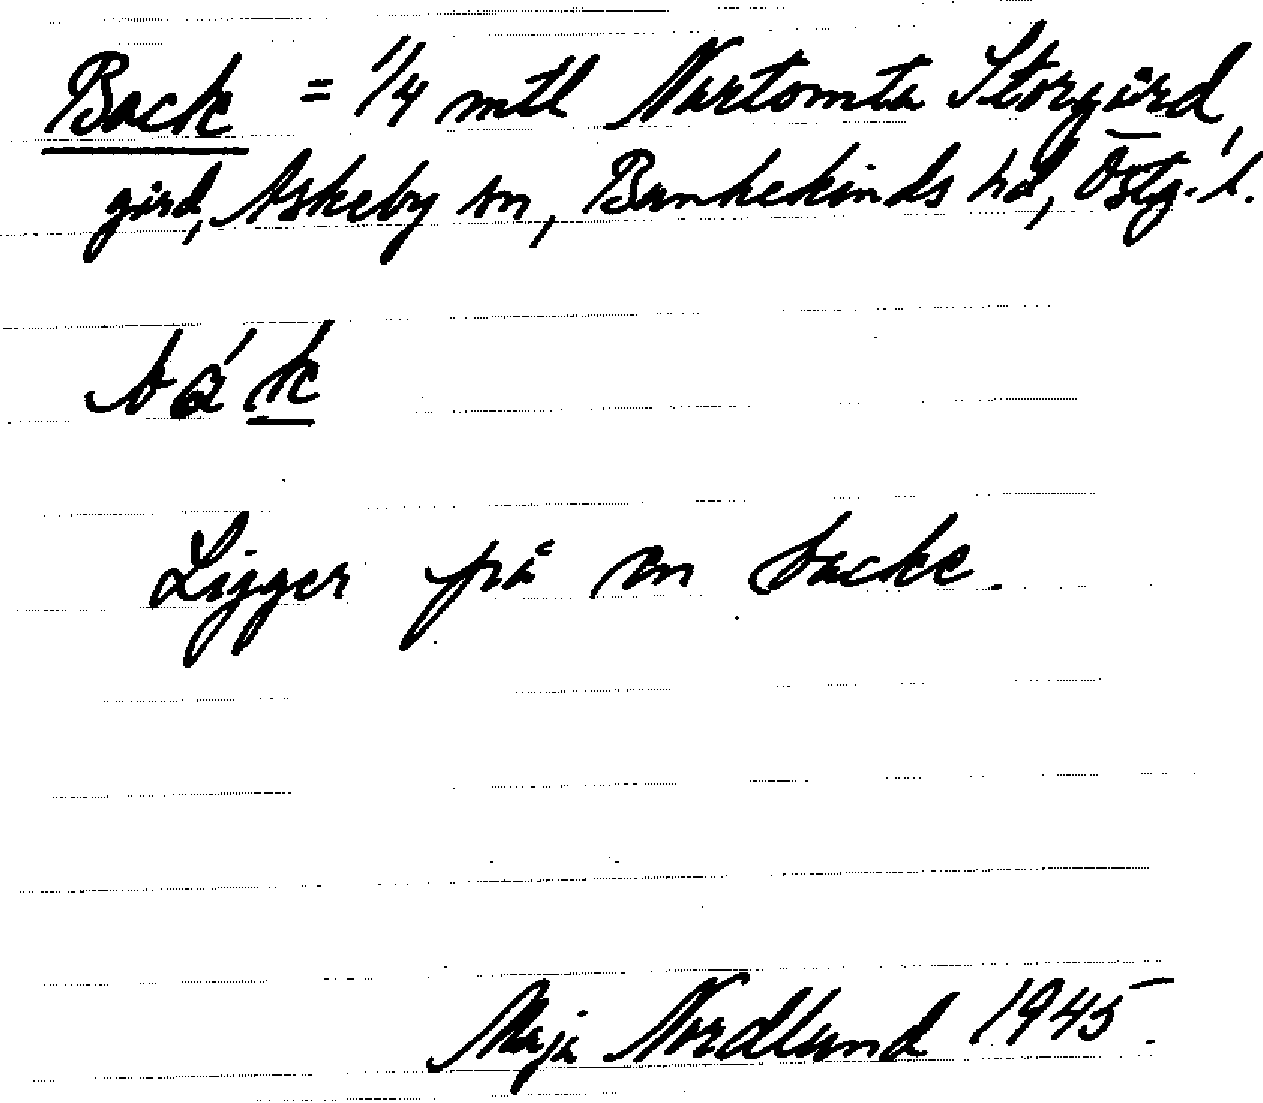 Back = 1/4 mtl Nartomta Storgård
gård, Askeby sn, Bankekinds hd, Östg. l.
bák
Ligger på en backe.
Maja Nordlund 1945.